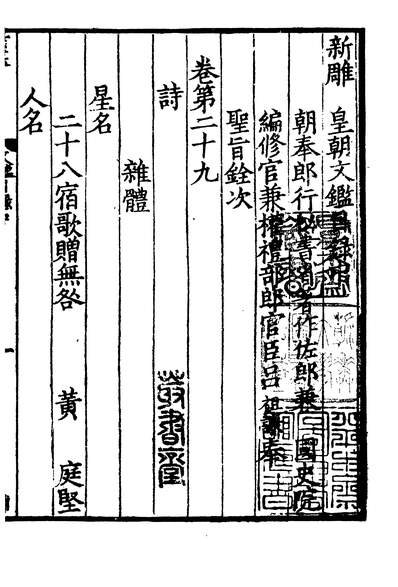 新雕 皇朝文鑑目録中
朝奉郎行秘書省著作佐郎兼 國史院
編修官兼權禮部郎官臣呂祖謙奉
聖旨銓次
卷第二十九
詩
叢書堂
雜體
星名
二十八宿歌贈無咎 黃庭堅
人名